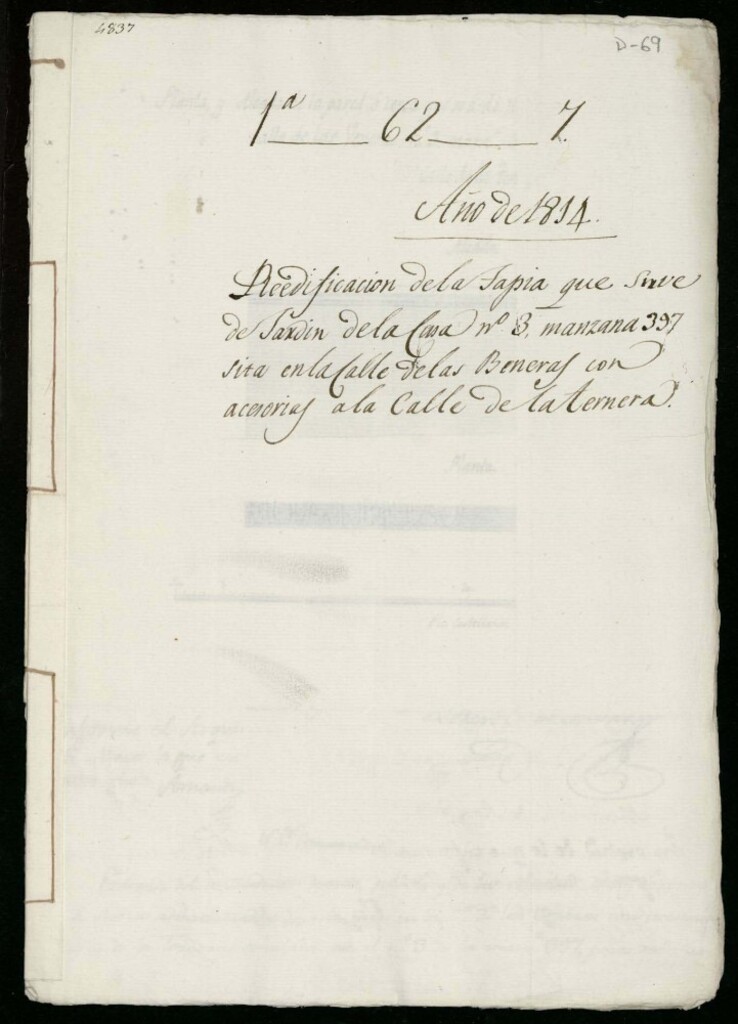 4837
D-69
1ª 62 7.
Año de 1814.
Reedificacion de la Tapia que sirve
de Jardin de la Casa nº 8. manzana 397
sita en la Calle de las Beneras con
acesorias a la Calle de la ternera.
Planta